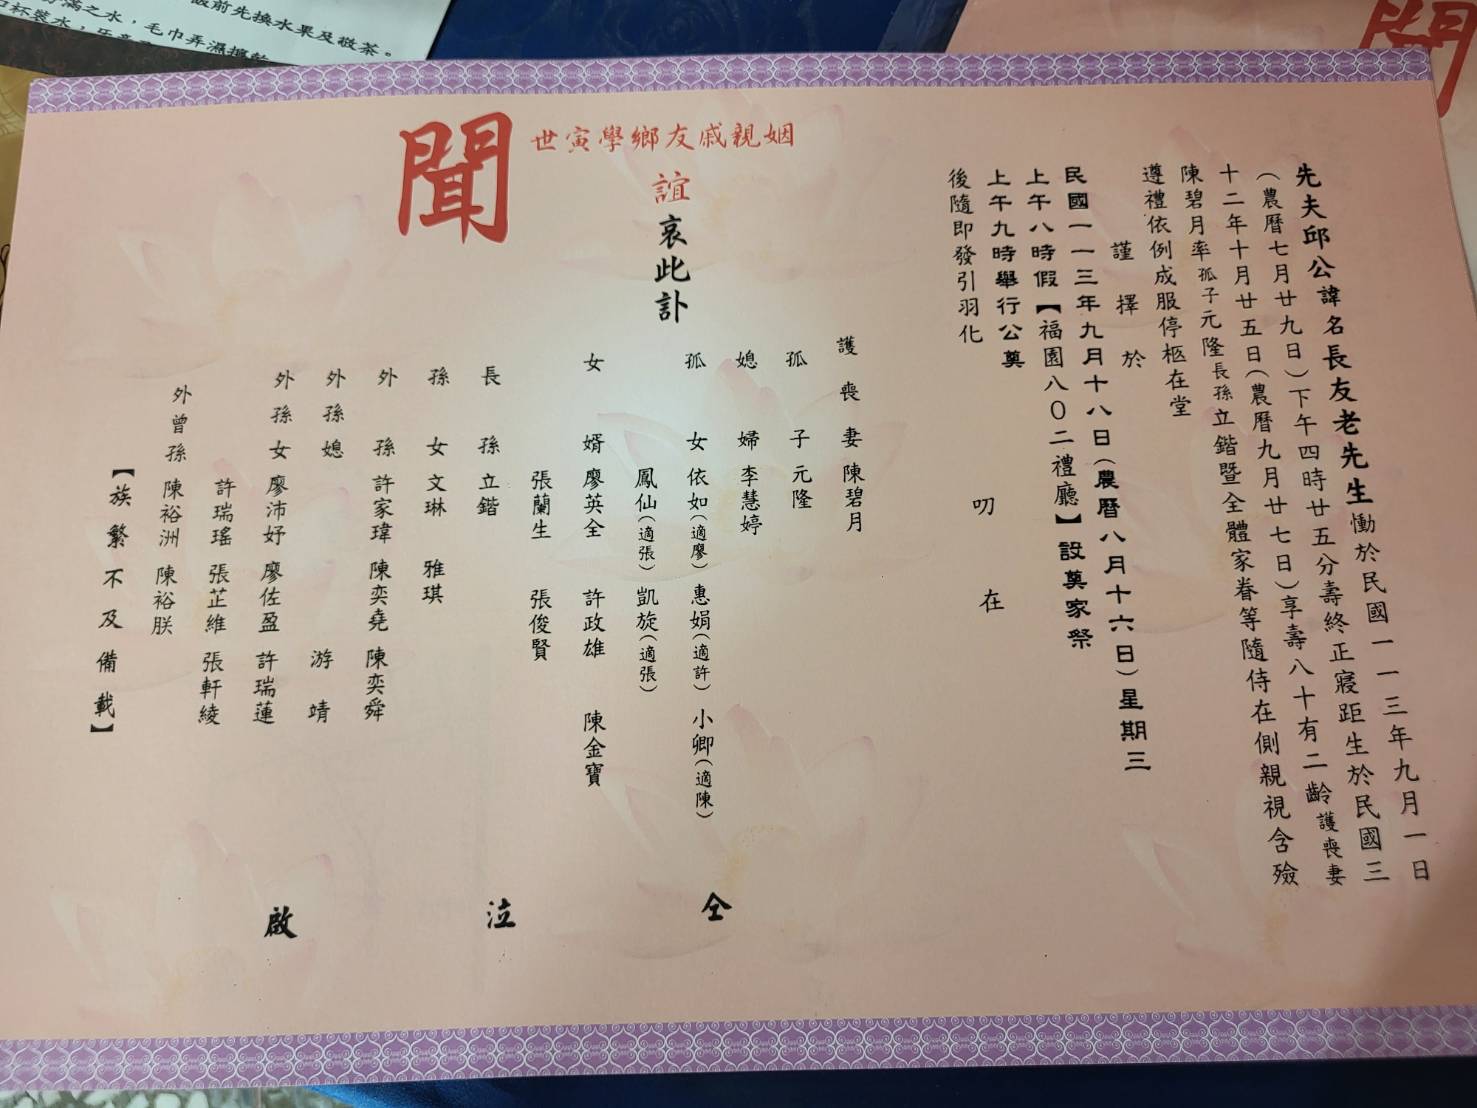 先夫邱公諱名長友老先生慟於民國一一三年九月一日
(農曆七月廿九日)下午四時廿五分壽終正寢距生於民國三
十二年十月廿五日(農曆九月廿七日)享壽八十有二齡護喪妻
陳碧月率孤子元隆長孫立鍇暨全體家眷等隨侍在側親視含殮
遵禮依例成服停柩在堂
謹擇於
民國一一三年九月十八日(農曆八月十六日)星期三
上午八時假【福園八0二禮廳】設奠家祭
上午九時舉行公奠
後隨即發引羽化
叨在
姻親戚友鄉學寅世
誼
哀此訃
聞
護喪妻陳碧月
孤子元隆
媳婦李慧婷
孤女依如(適廖) 惠娟(適許) 小卿(適陳)
鳳仙(適張) 凱旋(適張)
女婿廖英全 許政雄 陳金寶
張蘭生 張俊賢
長孫立鍇
孫女文琳 雅琪
外孫許家瑋 陳奕堯 陳奕舜
外孫媳 游靖
外孫女廖沛妤 廖佐盈 許瑞蓮
許瑞瑤 張芷維 張軒綾
外曾孫陳裕洲 陳裕朕
【族繁不及備載】
仝泣啟
飯前先換水果及敬茶。
滿之水，毛巾弄濕擰乾
杯裝水，
聞